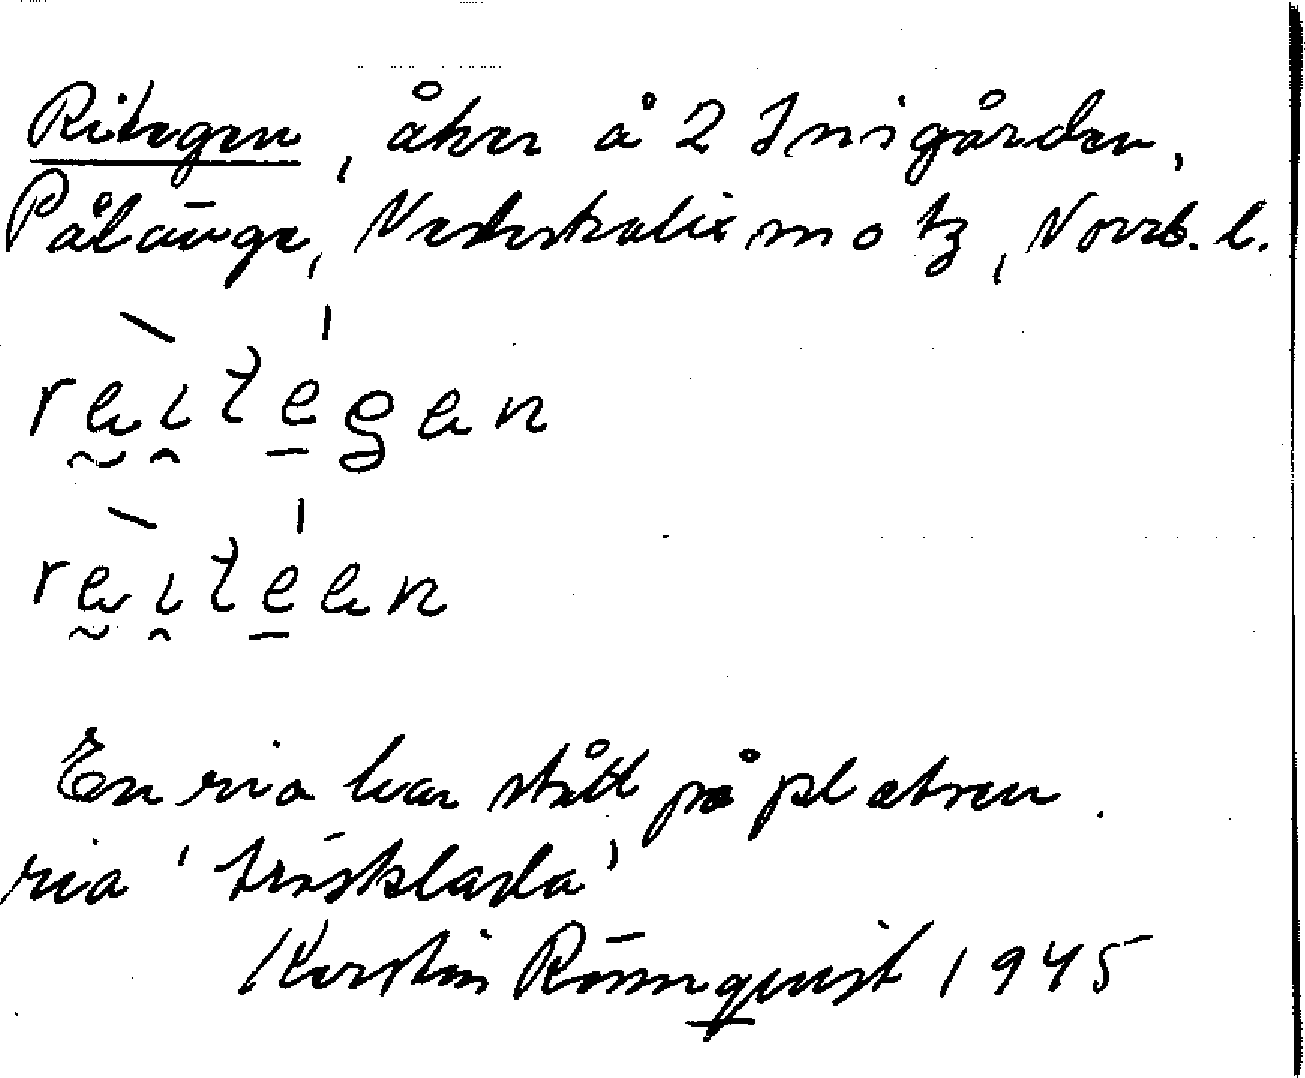 Ritegen, åker å 2 Inigården,
Pålänge, Nederkalix m o tz, Norrb. l.
re̯i̯tegen
re̯i̯teen
En ria har stått på platsen.
ria 'trösklada'
Kerstin Rönnquist 1945